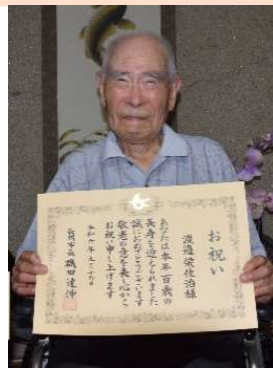 お祝い
渡邉榮佐治様
あなたは本年百歳の
長寿を迎えられました
誠におめでとうございます
敬老の意を表し心から
お祝い申し上げます
令和六年九月
市長 磯田達伸